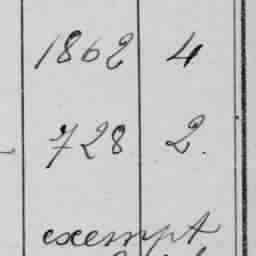 1862 4
728 2.
exempt